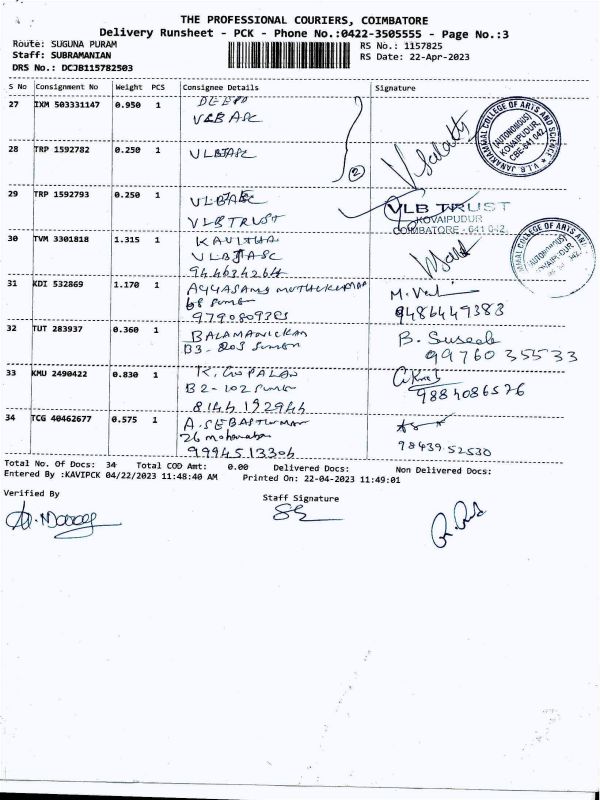 THE PROFESSIONAL COURIERS, COIMBATORE
Delivery Runsheet - PCK - Phone No.:0422-3505555 - Page No.:3
Route: SUGUNA PURAM
RS No.: 1157825
Staff: SUBRAMANIAN
RS Date: 22-Apr-2023
DRS No.: DCJB115782503
S No Consignment No Weight PCS Consignee Details Signature
27 IXM 503331147 0.950 1 DEEPA
VLB ASC
28 TRP 1592782 0.250 1 VLBJASC
2
29 TRP 1592793 0.250 1 VLBJASC
VLB TRUST
30 TVM 3301818 1.315 1 KAVITHA
VLBJASC
944634264
V.L.B. JANAKIAMMAL COLLEGE OF ARTS AND SCIENCE
(AUTONOMOUS)
KOVAIPUDUR
CBE-641 042.
VLB TRUST
KOVAIPUDUR
COIMBATORE - 641 042.
COLLEGE OF ARTS AND
(AUTONOMOUS)
KOVAIPUDUR
31 KDI 532869 1.170 1 AYYASAMY MUTHUKUMAR
9486449383
32 TUT 283937 0.360 1 BALAMANICKAM B. Suseela
B3-203 9976035533
33 KMU 2490422 0.830 1 K. GOPALAN
B2-102 9884086526
8144192944
34 TCG 40462677 0.575 1 A. SEBASTIN
26
9994513306 98439 52530
Total No. Of Docs: 34 Total COD Amt: 0.00 Delivered Docs: Non Delivered Docs:
Entered By :KAVIPCK 04/22/2023 11:48:40 AM Printed On: 22-04-2023 11:49:01
Verified By
Staff Signature